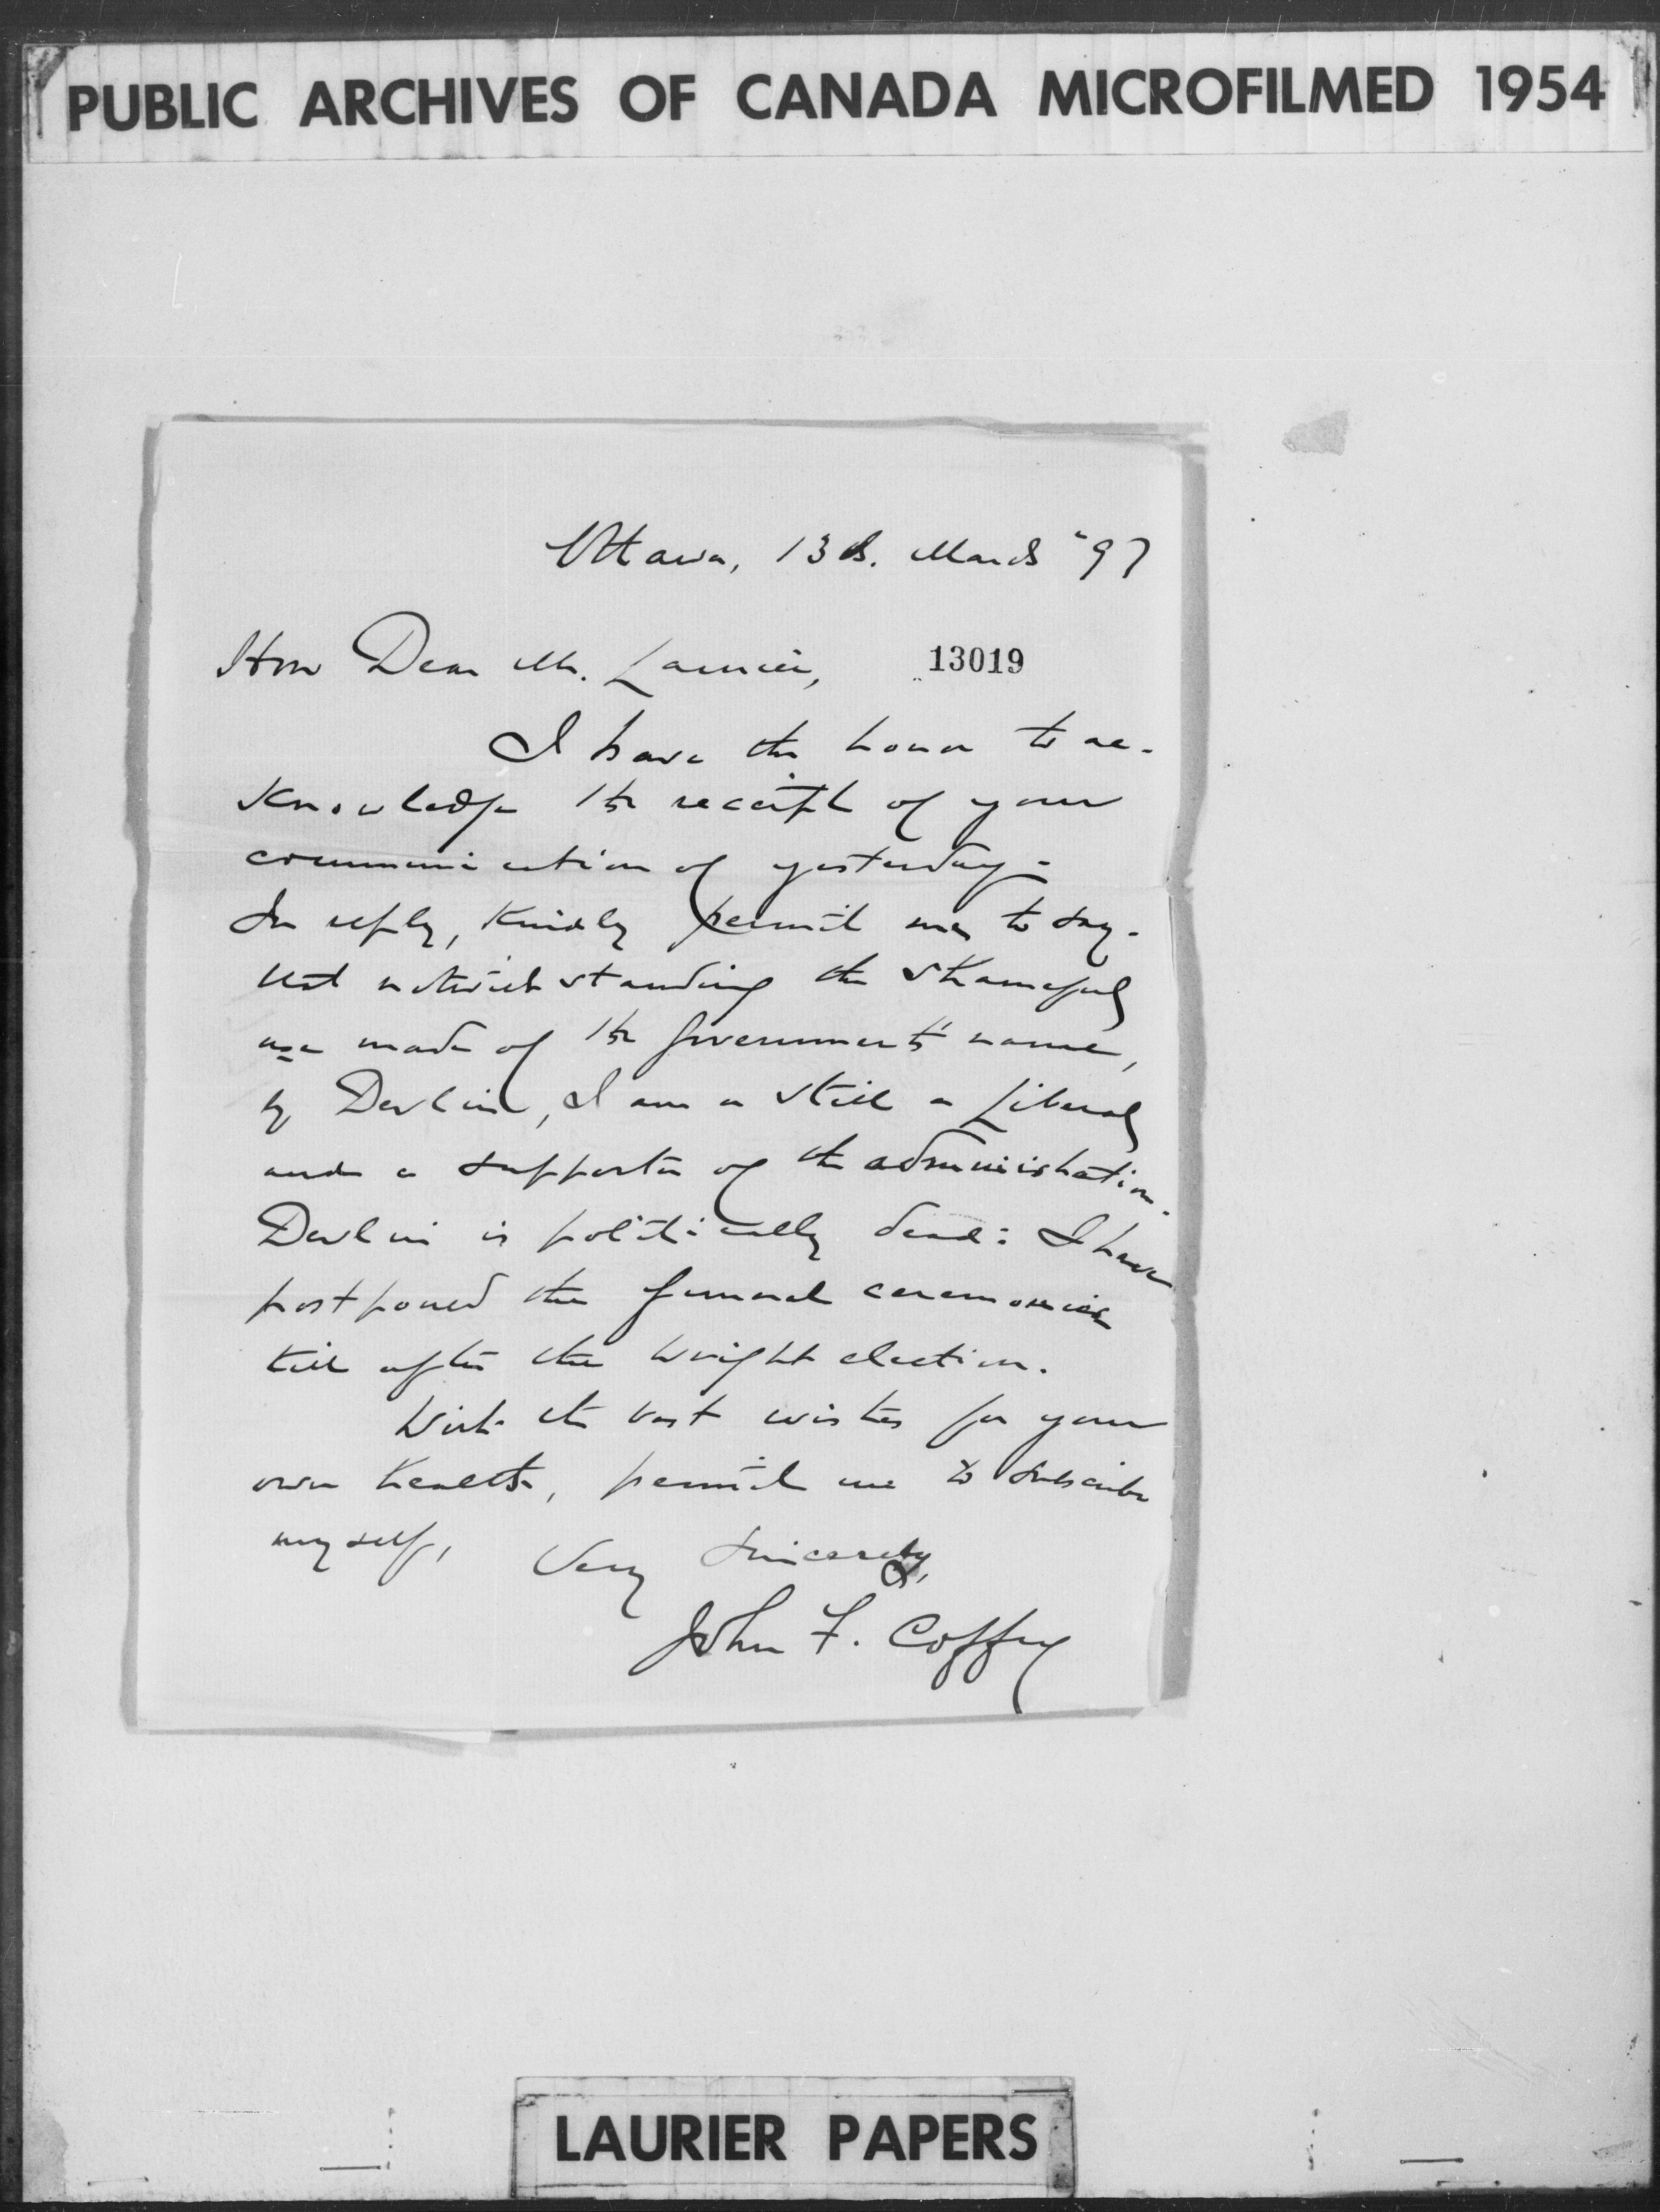 PUBLIC ARCHIVES OF CANADA MICROFILMED 1954
Ottawa, 13th. March "97
Hon Dear Mr. Laurier,
13019
I have the honor to ac-
knowledge the receipt of your
communication of yesterday-
In reply, kindly permit me to say-
that notwithstanding the shameful
use made of the Government's name,
by Devlin, I am a still a Liberal
and a supporter of the administration.
Devlin is politically dead: I have
postponed the funeral ceremonies
till after the Wright election.
With the best wishes for your
own health, permit me to subscribe
myself,
Very Sincerely,
John F. Coffey
LAURIER PAPERS